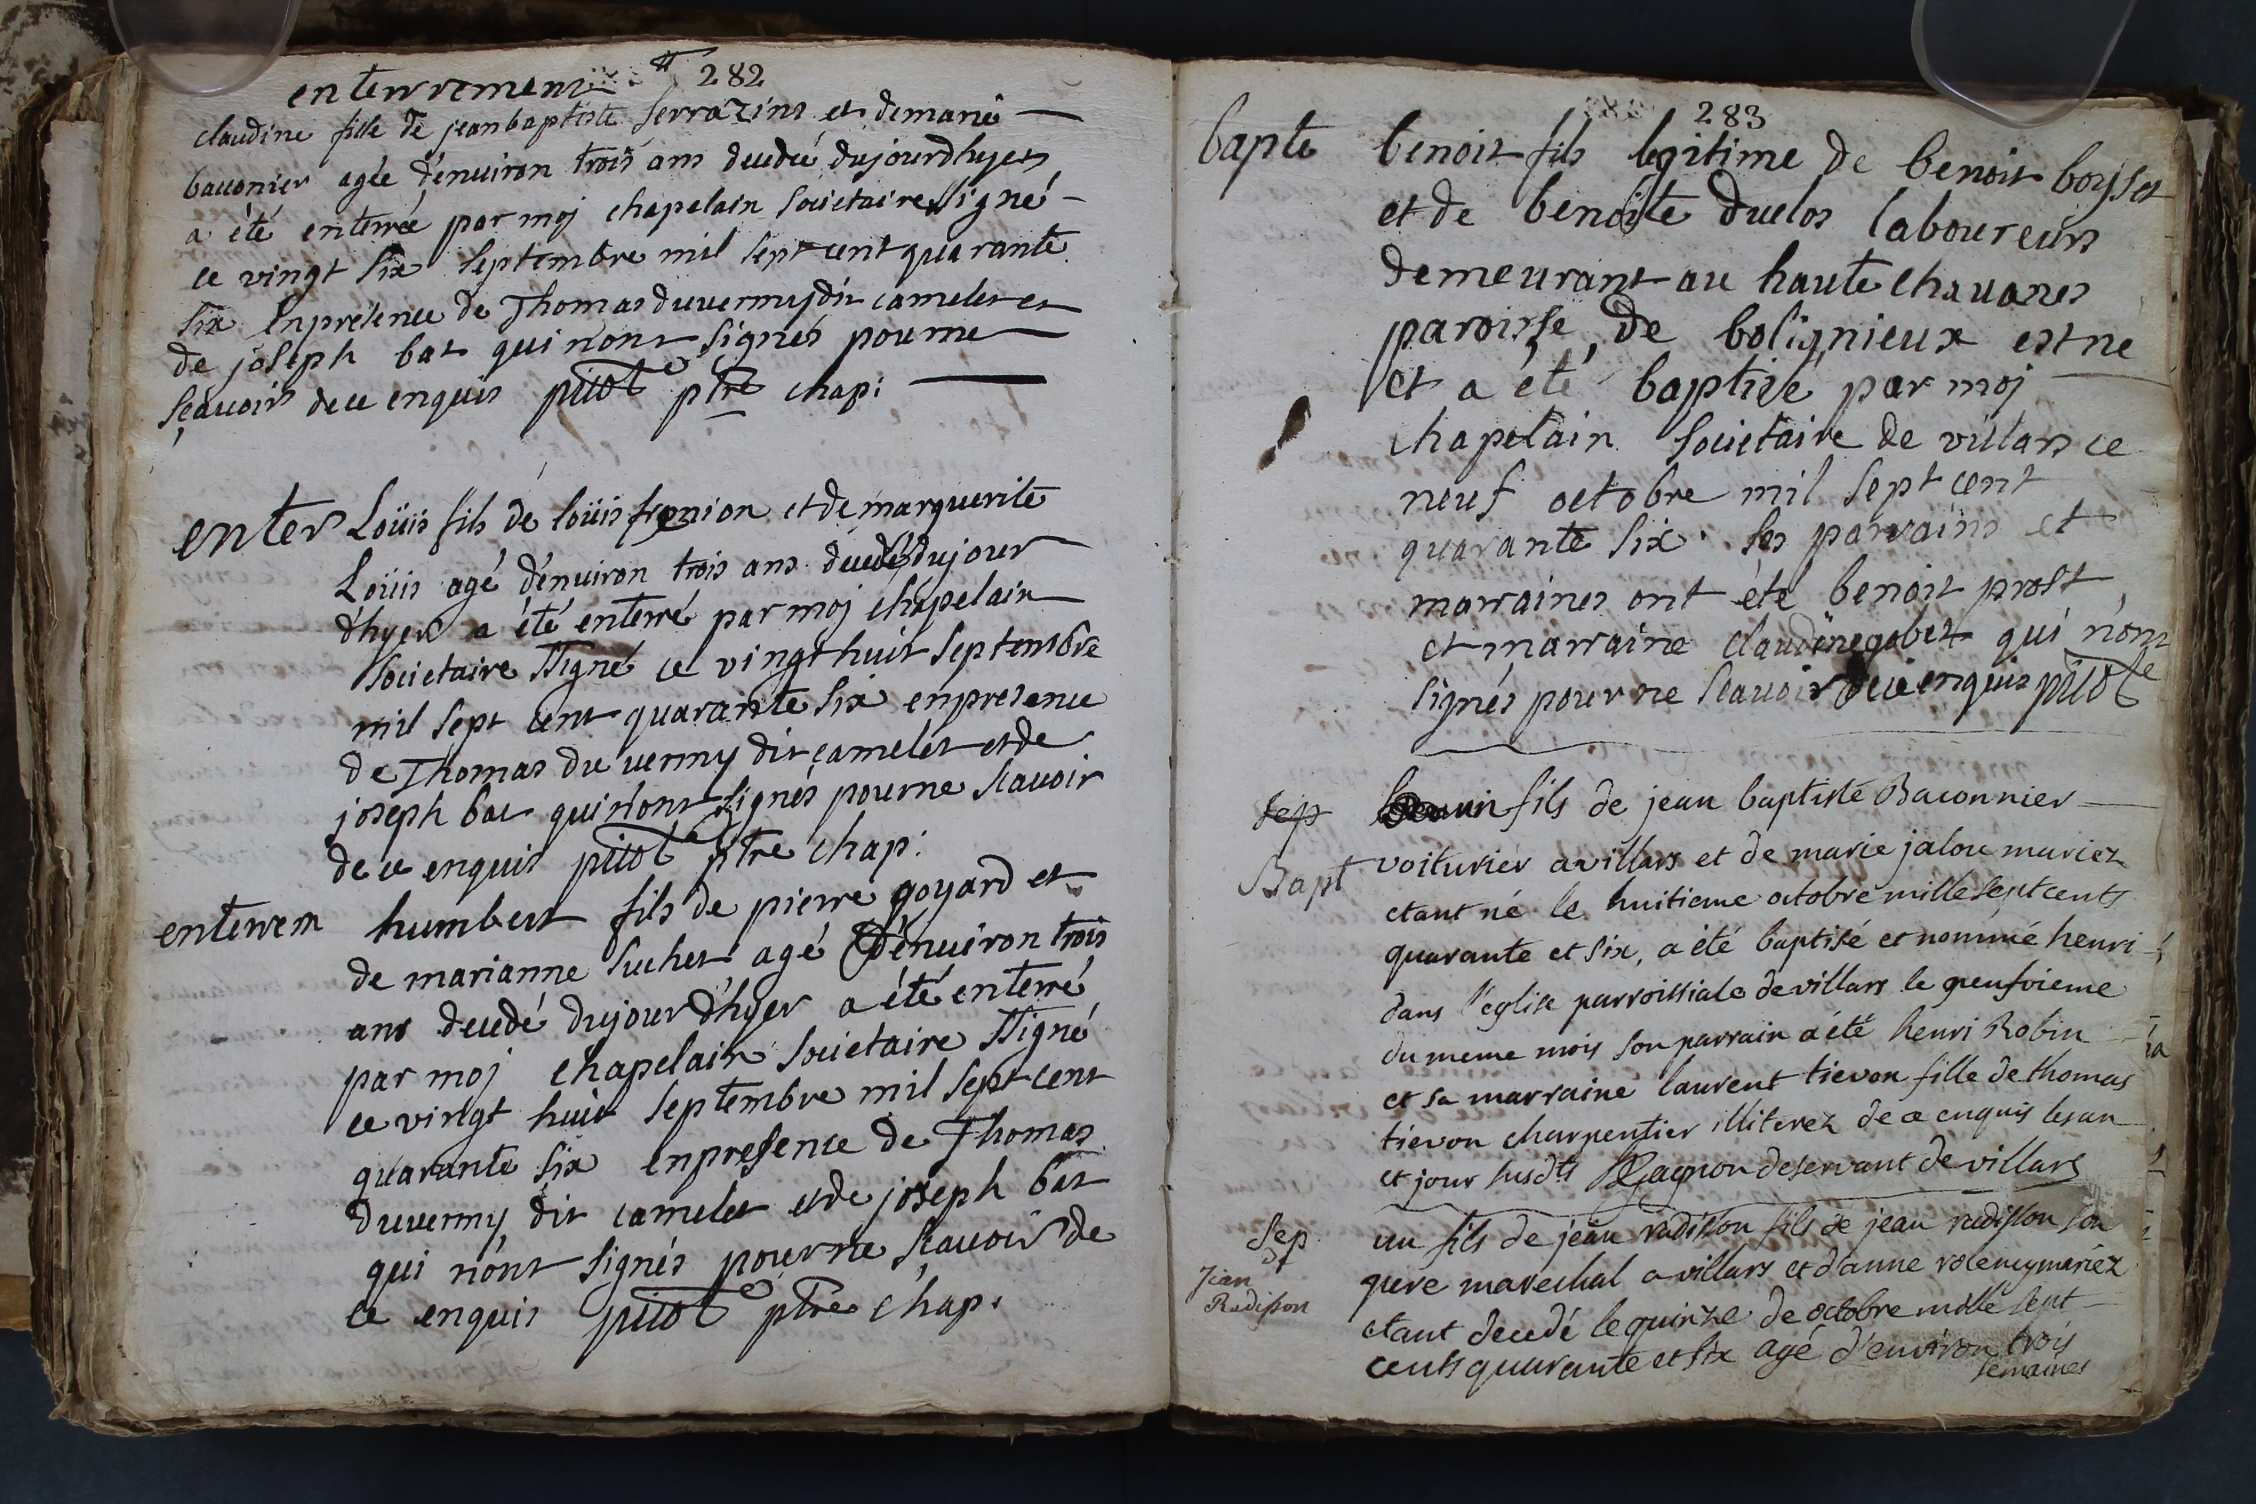 enterrement 282
claudine fille de jean baptiste serrazins et de marie
bauonier agée d'enuiron trois ans decedée du jour dhyers
a été enterrée par moj chapelain societaire ssigné
ce vingt six septembre mil sept cent quarante
six en presence de Thomas duuermy dit camelet et
de joseph bat qui n'ont signés pour ne
sçauoir de ce enquis pitot ptre chap:
enter Loüis fils de loüis et de marguerite
Loüis agé d'enuiron trois ans decedé du jour
d'hyer a été enterré par moj chapelain
societaire ssigné ce vingt huit septembre
mil sept cent quarante six en presence
de Thomas du uermy dit camelet et de
joseph bat qui n'ont signés pour ne scauoir
de ce enquis pitot ptre chap:
enterrem humbert fils de pierre goyard et
de marianne suchet agé d'enuiron trois
ans decedé du jour d'hyer a été enterré
par moj chapelain societaire ssigné
ce vingt huit septembre mil sept cent
quarante six en presence de Thomas
duuermy dit camelet et de joseph bat
qui n'ont signés pour ne sçauoir de
ce enquis pitot ptre chap:
283
bapte benoit fils legitime de benoit boysset
et de benoite duclos laboureurs
demeurant au haute chauanes
paroisse de bolignieux est ne
et a été baptizé par moj
chapelain societaire de villars ce
neuf octobre mil sept cent
quarante six. ses parrains et
marraines ont été benoit prost
et marraine claudine gobet qui n'ont
signés pour ne scauoir de ce enquis pitot
sep un fils de jean baptiste Baconnier
Bapt voiturier a villars et de marie jalou mariez
etant né le huitieme octobre mille sept cents
quarante et six, a été baptisé et nommé henri
dans l'eglise parroissiale de villars le neufvieme
du meme mois son parrain a été henri Robin
et sa marraine laurent tievon fille de thomas
tievon charpentier illiterez de ce enquis les an
et jour susdts Gagnon deservant de villars
Sep un fils de jean radisson fils de jean radisson son
Jean pere marechal a villars et d'anne mariéz
Radisson etant decedé le quinze de octobre mille sept
cents quarante et six agé d'environ trois
semaines